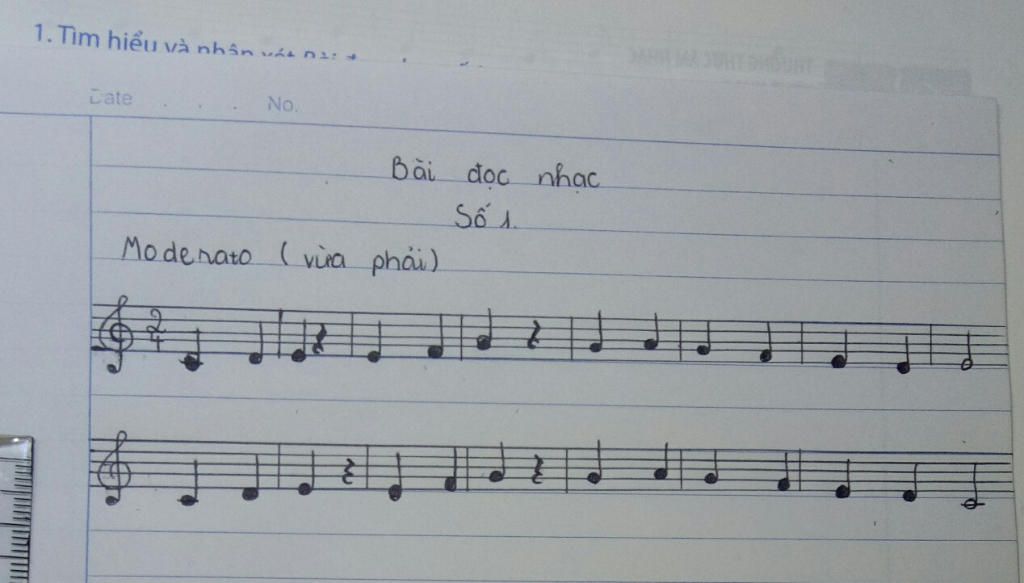 1. Tìm hiểu và nhận xét Bài
Date No.
Bài đọc nhạc
Số 1.
Moderato (vừa phải)
2
4